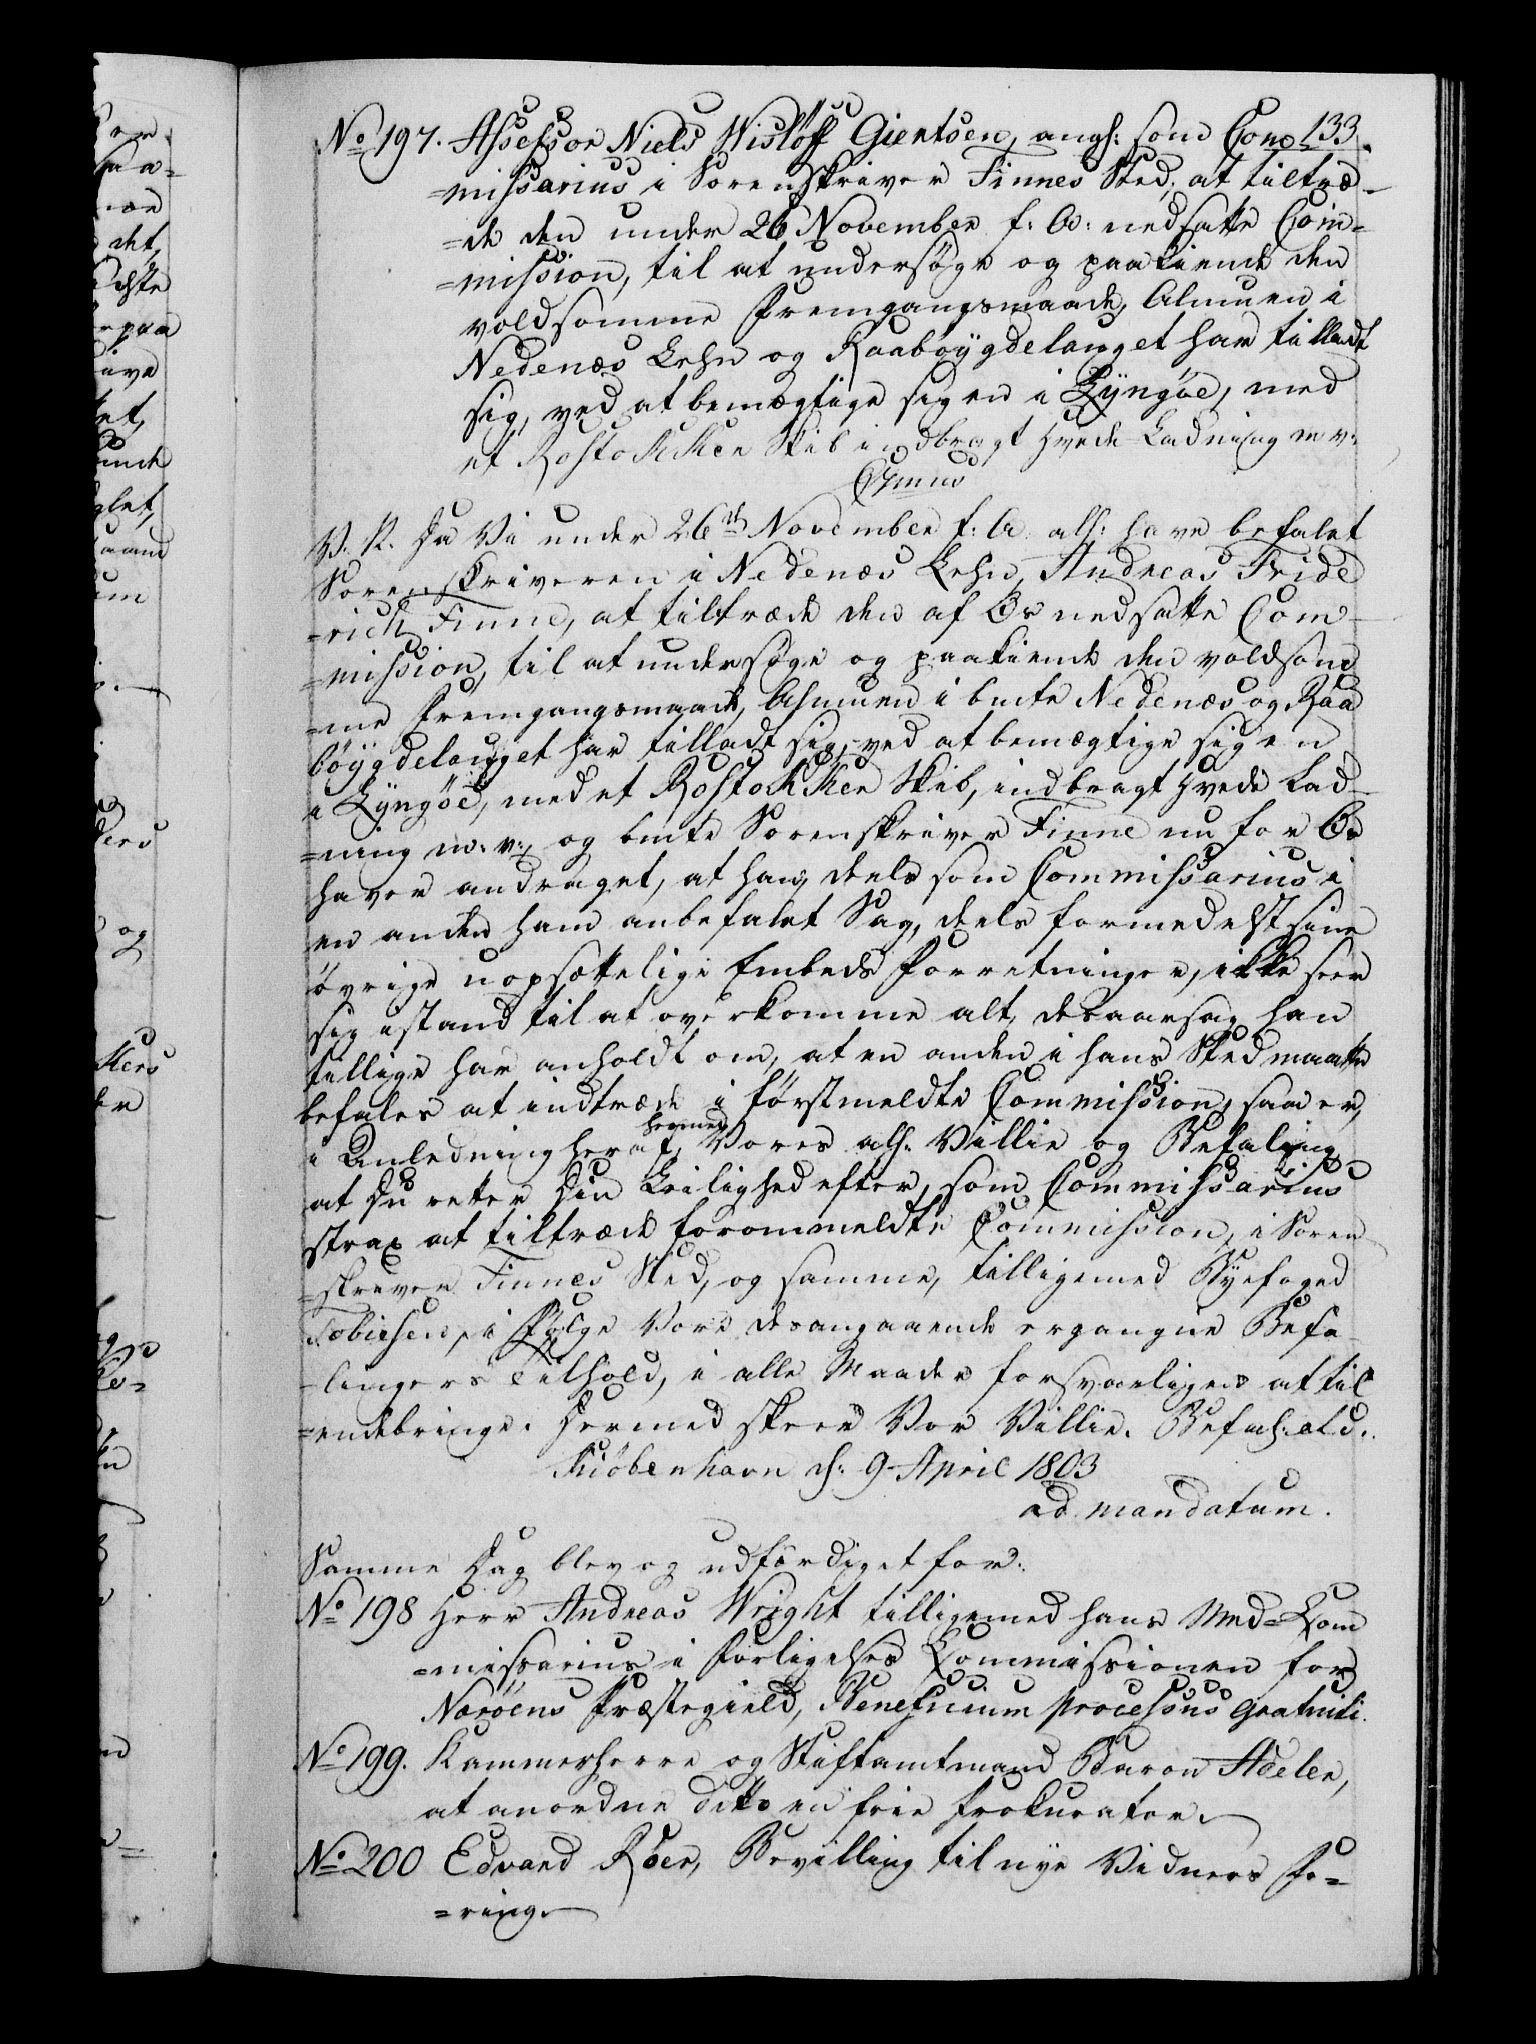 133.
No 197. Assessor Niels Wisløff Gientsen, angs: som Com-
=missarius i Sorenskriver Finnes Sted, at tiltræ-
=de den under 26 November f: A: nedsatte Com=
=mission, til at undersøge og paakiende den
voldsomme Fremgangsmaade, Almuen i
Nedenæs Lehn og Raabøygdelauget har tilladt
sig, ved at bemægtige sig en i Lyngøe, med
et RostokKer Skib indbragt Hvede-Ladning m v:
V. P. Da Vi under 26de November f: A. alt: have befalet
Sorenskriveren i Nedenæs Lehn, Andreas Fride
=rich Finne, at tiltræde den af Os nedsatte Com-
=mission, til at undersøge og paakiende den voldsom
=me Fremgangsmaade, Almuen i bmte Nedenæs og Raa
bøygdelauget har tilladt sig, ved at bemægtige sig en
i Lyngöe, med et RostokKer Skib, indbragt Hvede Lad-
=ning m: v:, og bmte Sorenskriver Finne nu for Os
haver andraget, at han, deels som Commissarius i
en anden ham anbefalet Sag, deels formedelst sine
övrige uopsættelige Embeds Forretninger, ikke seer
sig istand til at overkomme alt, desaarsag han
tillige har anholdt om, at en anden i hans Sted maatte
befales at indtræde i förstmeldte Commission, saa er,
i Anledning heraf, hermed Vores alh: Villie og Befaling
at Du retter Din Leilighed efter, som Commissarius
strax at tiltræde forommeldte Commission, i Soren
=skriver Finnes Sted, og samme, tilligemed Byefoged
Tobiesen, i Fölge Vore desangaaende ergangne Befa-
-lingers Tilhold, i alle Maader forsvarligen at til
=endebringe. Hermed skeer Vor Villie. Befalh: etc:.
Kiöbenhavn d: 9 April 1803
ad mandatum.
Samme Dag blev og udfærdiget for:
No 198 Herr Andreas Wright tilligemed hans Med=Com
=missarius i Forligelses Commissionen for
Næröens Præstegield, Beneficium processus gratuiti.
No 199. Kammerherre og Stiftamtmand Baron Adeler,
at anordne ditto en frie Prokurator.
No 200 Edvard Röer, Bevilling til nye Vidners Fø=
=ring.